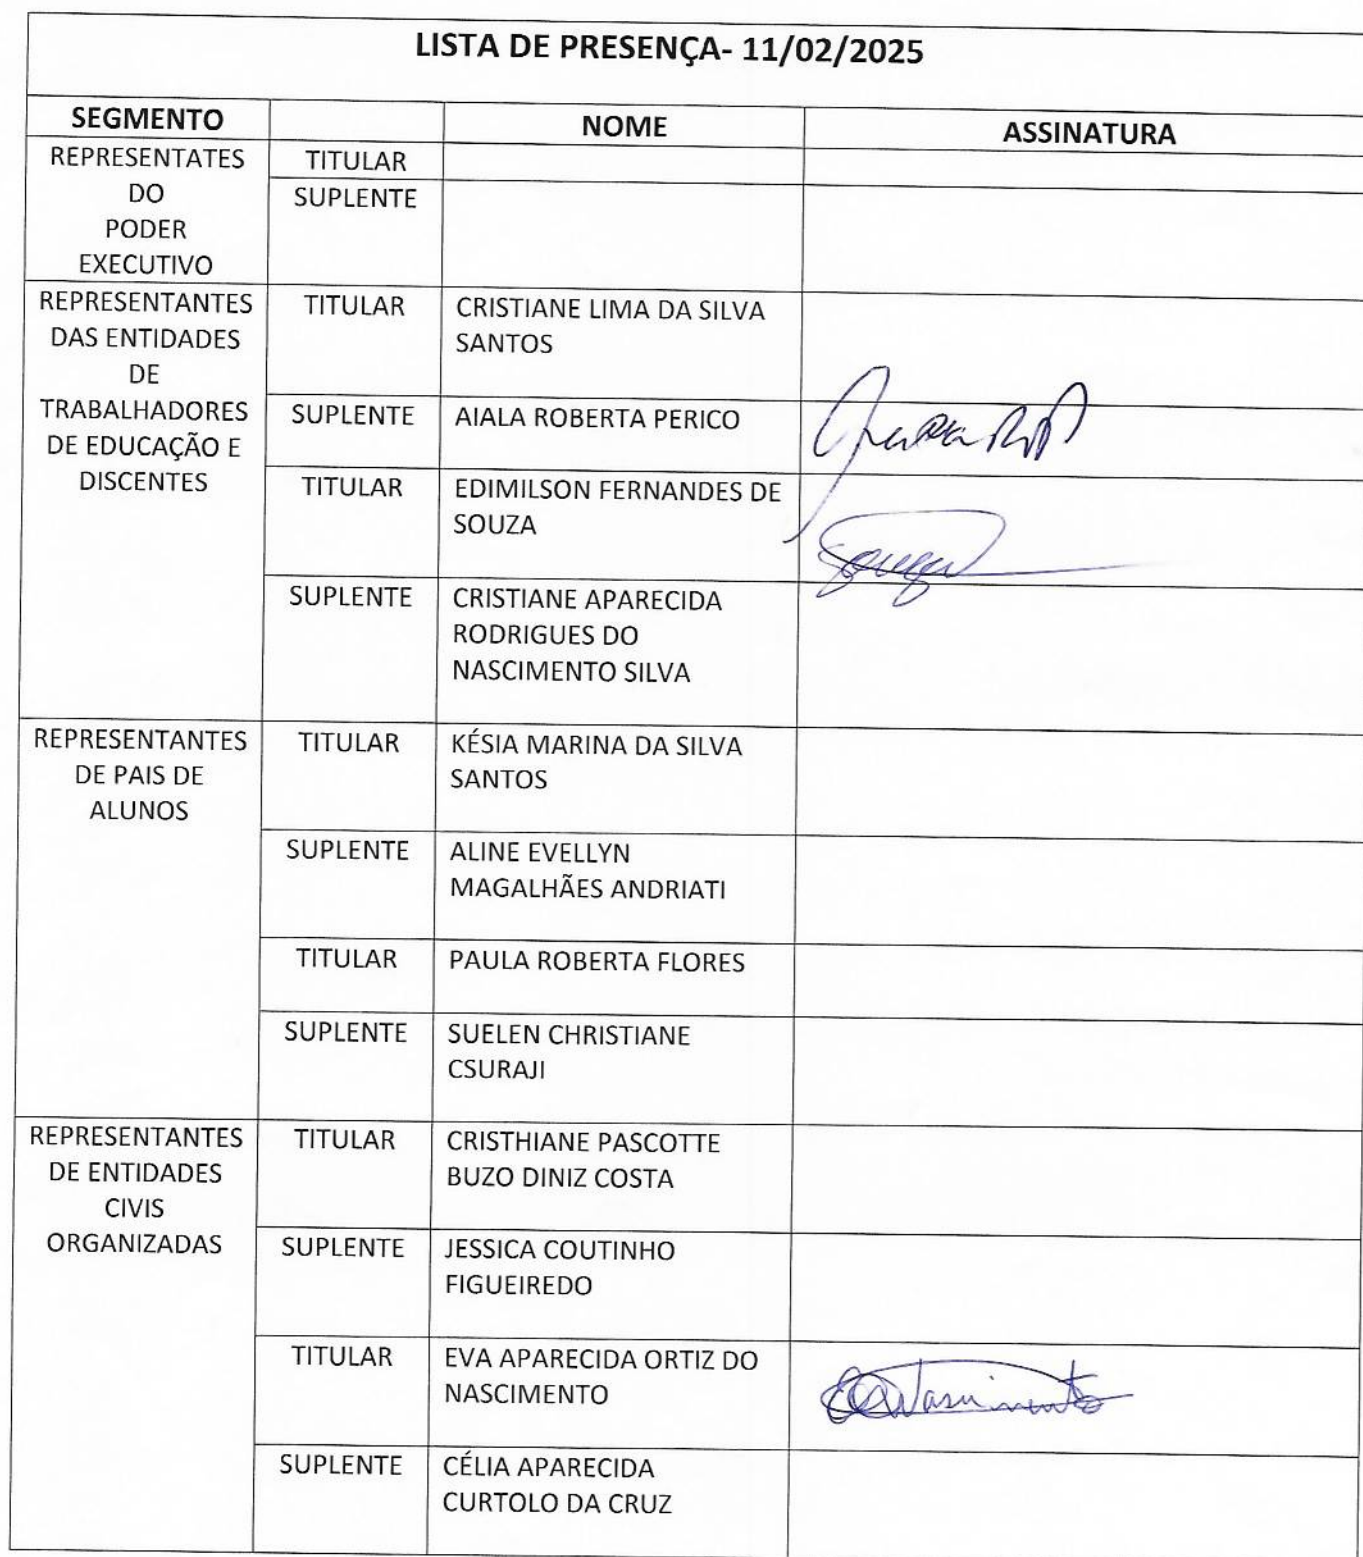 LISTA DE PRESENÇA- 11/02/2025
SEGMENTO NOME ASSINATURA
REPRESENTATES
DO
PODER
EXECUTIVO
TITULAR
SUPLENTE
REPRESENTANTES
DAS ENTIDADES
DE
TRABALHADORES
DE EDUCAÇÃO E
DISCENTES
TITULAR
CRISTIANE LIMA DA SILVA
SANTOS
SUPLENTE
AIALA ROBERTA PERICO
TITULAR
EDIMILSON FERNANDES DE
SOUZA
SUPLENTE
CRISTIANE APARECIDA
RODRIGUES DO
NASCIMENTO SILVA
REPRESENTANTES
DE PAIS DE
ALUNOS
TITULAR
KÉSIA MARINA DA SILVA
SANTOS
SUPLENTE
ALINE EVELLYN
MAGALHÃES ANDRIATI
TITULAR
PAULA ROBERTA FLORES
SUPLENTE
SUELEN CHRISTIANE
CSURAJI
REPRESENTANTES
DE ENTIDADES
CIVIS
ORGANIZADAS
TITULAR
CRISTHIANE PASCOTTE
BUZO DINIZ COSTA
SUPLENTE
JESSICA COUTINHO
FIGUEIREDO
TITULAR
EVA APARECIDA ORTIZ DO
NASCIMENTO
Nascimento
SUPLENTE
CÉLIA APARECIDA
CURTOLO DA CRUZ